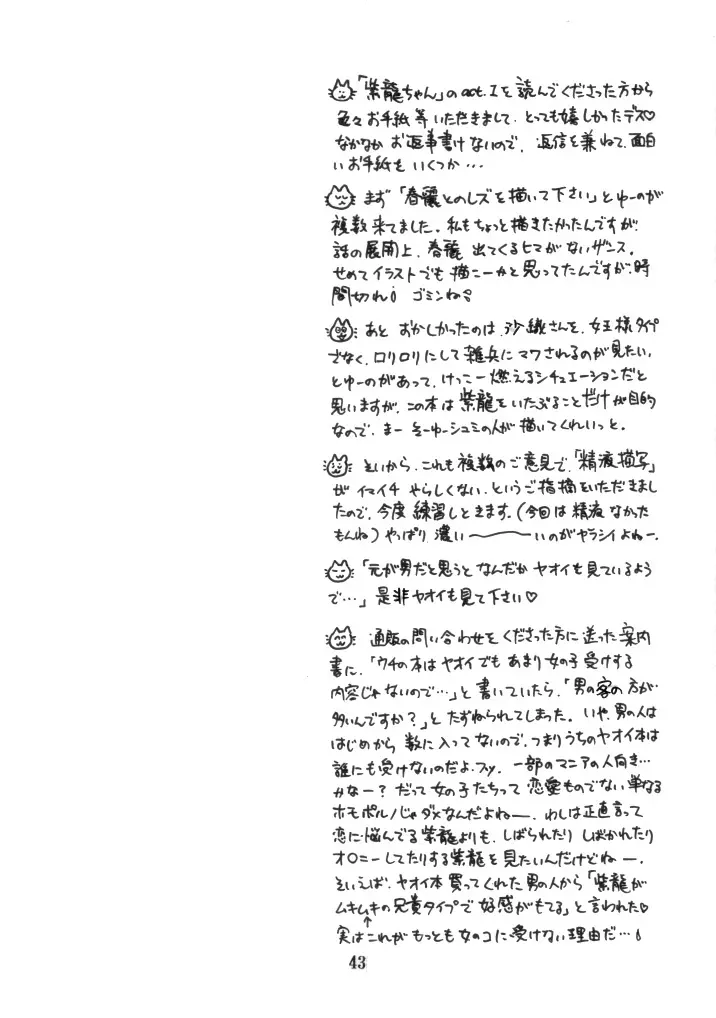 「紫龍ちゃん」のact.Iを読んでくださった方から
色々お手紙等いただきまして、とっても嬉しかったデス♡
なかなかお返事書けないので、返信を兼ねて、面白
いお手紙をいくつか…
まず「春麗とのレズを描いて下さい」とゆーのが
複数来てました。私もちょっと描きたかったんですが、
話の展開上、春麗出てくるヒマがないザンス。
せめてイラストでも描こーかと思ってたんですが、時
間切れ! ゴミンね
あとおかしかったのは、沙織さんを、女王様タイプ
でなく、ロリロリにして雑兵にマワされるのが見たい、
とゆーのがあって、けっこー燃えるシチュエーションだと
思いますが、この本は紫龍をいたぶることだけが目的
なので、まーそーゆーシュミの人が描いてくれいっと。
そいから、これも複数のご意見で、「精液描写」
がイマイチやらしくない、というご指摘をいただきまし
たので、今度練習しときます。(今回は精液なかった
もんね)やっぱり濃い〜〜いのがヤラシイよねー。
「元が男だと思うとなんだかヤオイも見ているよう
で…」是非ヤオイも見て下さい♡
通販の問い合わせをくださった方に送った案内
書に、「ウチの本はヤオイでもあまり女の子受けする
内容じゃないので…」と書いていたら、「男の客の方が
多いんですか?」とたずねられてしまった。いや、男の人は
はじめから数に入ってないので、つまりうちのヤオイ本は
誰にも受けないのだよ、フッ。一部のマニアの人向き…
かなー?だって女の子たちって恋愛ものでない単なる
ホモポルノじゃダメなんだよねー、わしは正直言って
恋に悩んでる紫龍よりも、しばられたりしばかれたり
オ○ニーしてたりする紫龍を見たいんだけどねー。
そいえば、ヤオイ本買ってくれた男の人から「紫龍が
ムキムキの兄貴タイプで好感がもてる」と言われた♡
実は↑これがもっとも女のコに受けない理由だ…!
43